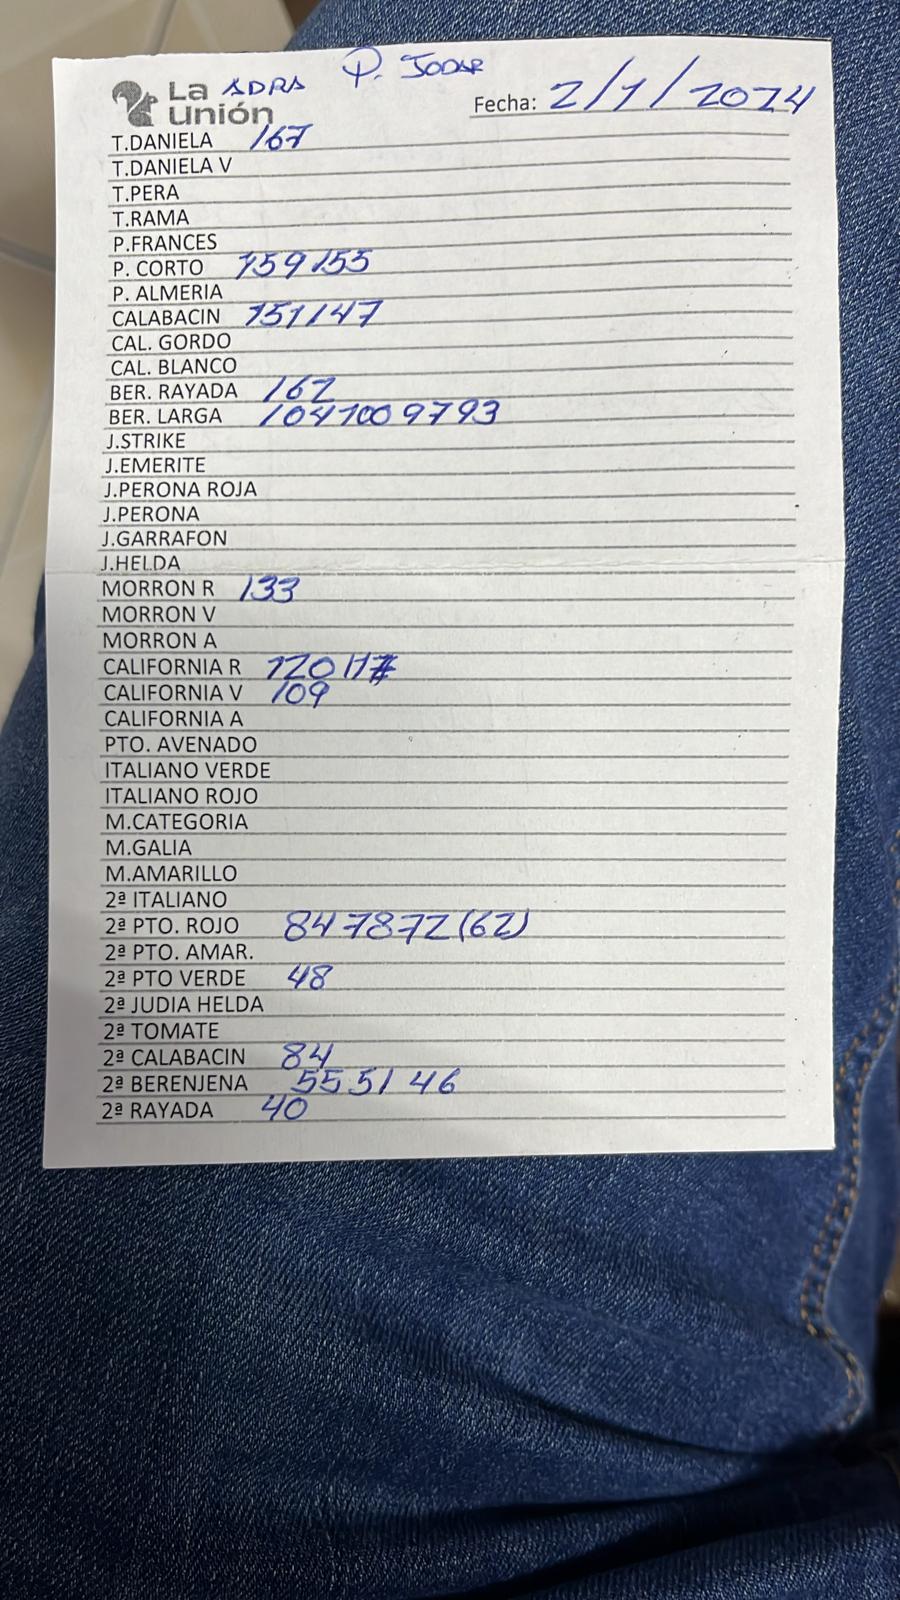 La ADRA P. JODAR
Unión Fecha: 2/1/2024
T.DANIELA 167
T.DANIELA V
T.PERA
T.RAMA
P.FRANCES
P. CORTO 159 155
P. ALMERIA
CALABACIN 151 147
CAL. GORDO
CAL. BLANCO
BER. RAYADA 162
BER. LARGA 104 100 97 93
J.STRIKE
J.EMERITE
J.PERONA ROJA
J.PERONA
J.GARRAFON
J.HELDA
MORRON R 133
MORRON V
MORRON A
CALIFORNIA R 120
CALIFORNIA V 109
CALIFORNIA A
PTO. AVENADO
ITALIANO VERDE
ITALIANO ROJO
M.CATEGORIA
M.GALIA
M.AMARILLO
2ª ITALIANO
2ª PTO. ROJO 84 78 72 (62)
2ª PTO. AMAR.
2ª PTO VERDE 48
2ª JUDIA HELDA
2ª TOMATE
2ª CALABACIN 84
2ª BERENJENA 55 51 46
2ª RAYADA 40